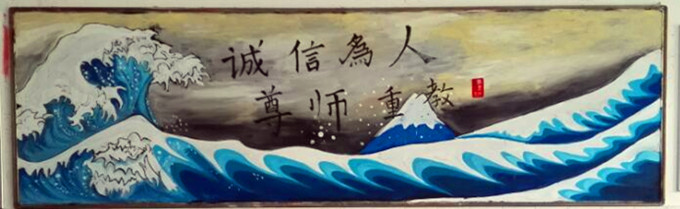 诚信為人
尊师重教